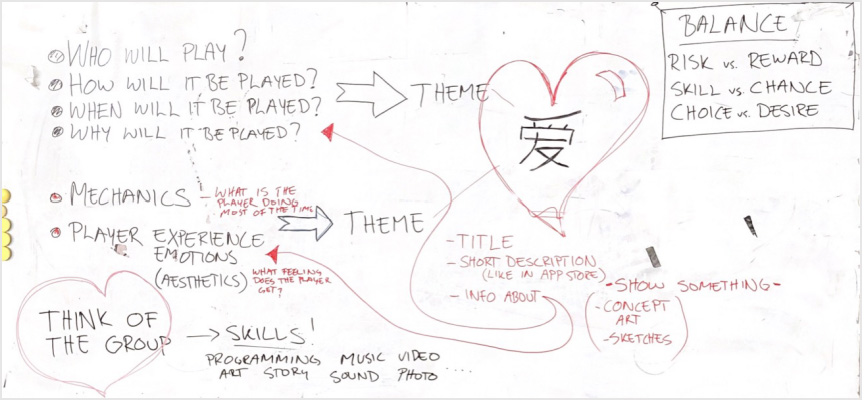 WHO WILL PLAY?
HOW WILL IT BE PLAYED?
WHEN WILL IT BE PLAYED?
WHY WILL IT BE PLAYED?
THEME
爱
BALANCE
RISK vs. REWARD
SKILL vs. CHANCE
CHOICE vs. DESIRE
MECHANICS - WHAT IS THE
PLAYER DOING
MOST OF THE TIME
PLAYER EXPERIENCE
EMOTIONS
(AESTHETICS)
WHAT FEELING
DOES THE PLAYER
GET?
THEME
- TITLE
- SHORT DESCRIPTION
(LIKE IN APP STORE)
- INFO ABOUT
- SHOW SOMETHING -
- CONCEPT
ART
- SKETCHES
THINK OF
THE GROUP
→ SKILLS!
PROGRAMMING MUSIC VIDEO
ART STORY SOUND PHOTO ....